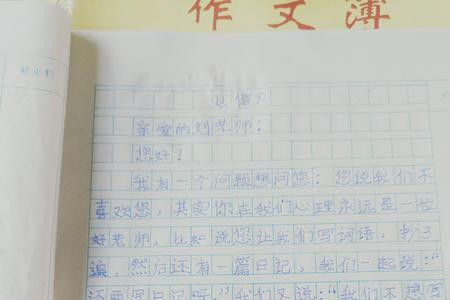 作文簿
亲爱的刘老师：
您好！
我有一个问题想问您：您说我们不
喜欢您，其实你在我们心理永远是一位
好老师，比如说您让我们写词语，抄3
遍，然后还有一篇日记，我们一起说：“
还要写日记呀。”我们又说：“我们不想写